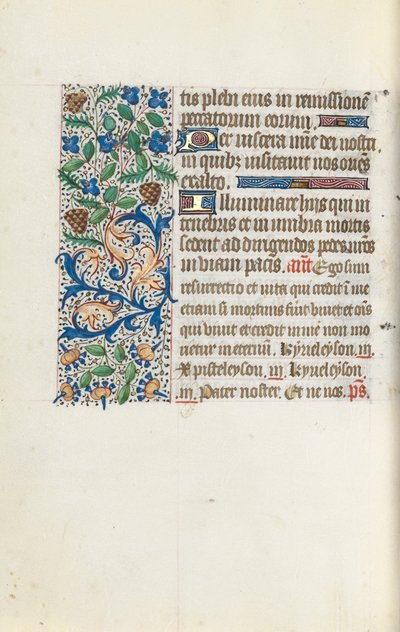 tis plebi eius in remissionē
peccatorum eorum.
Per viscera mīe dei nostri
in quibȝ visitavit nos oriēs
ex alto.
Illuminare hijs qui in
tenebris et in umbra mortis
sedent ad dirigendos pedes nr̄os
in viam pacis. añt Ego sum
resurrectio et vita qui credit ī me
etiam si mortuus fuit vivet et oīs
qui vivit et credit in me non mo
rietur in eternū. Kyrieleyson. iij.
Xpisteleyson. iij. Kyrieleyson.
iij. Pater noster. Et ne nos. ps̄.